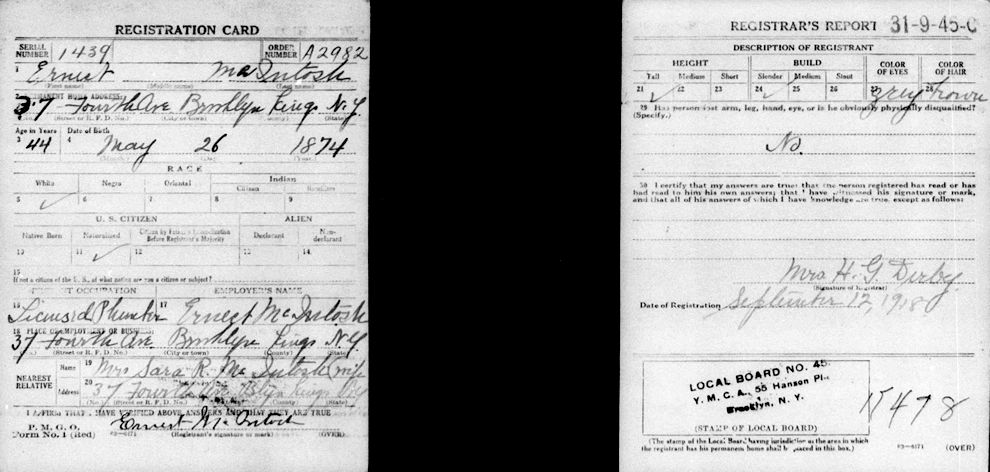 REGISTRATION CARD
SERIAL NUMBER 1439 ORDER NUMBER A2982
1 Ernest McIntosh
(First name) (Middle name) (Last name)
2 PERMANENT HOME ADDRESS:
37 Fourth Ave Brooklyn Kings N.Y.
(Street or R. F. D. No.) (City or town) (County) (State)
Age in Years Date of Birth
3 44 4 May 26 1874
(Month) (Day) (Year)
RACE
White Negro Oriental Indian
Citizen Noncitizen
5 ✓ 6 7 8 9
U. S. CITIZEN ALIEN
Native Born Naturalized Citizen by Father's Naturalization Before Registrant's Majority Declarant Non-declarant
10 11 ✓ 12 13 14
15
If not a citizen of the U. S., of what nation are you a citizen or subject?
PRESENT OCCUPATION EMPLOYER'S NAME
16 Licensed Plumber 17 Ernest McIntosh
18 PLACE OF EMPLOYMENT OR BUSINESS:
37 Fourth Ave. Brooklyn Kings N.Y.
(No.) (Street or R. F. D. No.) (City or town) (County) (State)
NEAREST RELATIVE
Name 19 Mrs Sara R. McIntosh wife
Address 20 37 Fourth Ave Bklyn Kings N.Y.
(No.) (Street or R. F. D. No.)
I AFFIRM THAT I HAVE VERIFIED ABOVE ANSWERS AND THAT THEY ARE TRUE
P. M. G. O.
Form No. 1 (Red) Ernest McIntosh
(Registrant's signature or mark) (OVER)
REGISTRAR'S REPORT 31-9-45-C
DESCRIPTION OF REGISTRANT
HEIGHT BUILD COLOR OF EYES COLOR OF HAIR
Tall Medium Short Slender Medium Stout
21 22 ✓ 23 24 ✓ 25 26 27 grey 28 brown
29 Has person lost arm, leg, hand, eye, or is he obviously physically disqualified?
(Specify.)
No.
30 I certify that my answers are true; that the person registered has read or has
had read to him his own answers; that I have witnessed his signature or mark,
and that all of his answers of which I have knowledge are true, except as follows:
Mrs H. G. Derby
(Signature of Registrar)
Date of Registration September 12, 1918
LOCAL BOARD NO. 45
Y. M. C. A., 55 Hanson Pl.
Brooklyn, N. Y.
(STAMP OF LOCAL BOARD)
(The stamp of the Local Board having jurisdiction of the area in which
the registrant has his permanent home shall be placed in this box.)
63-6171 (OVER)